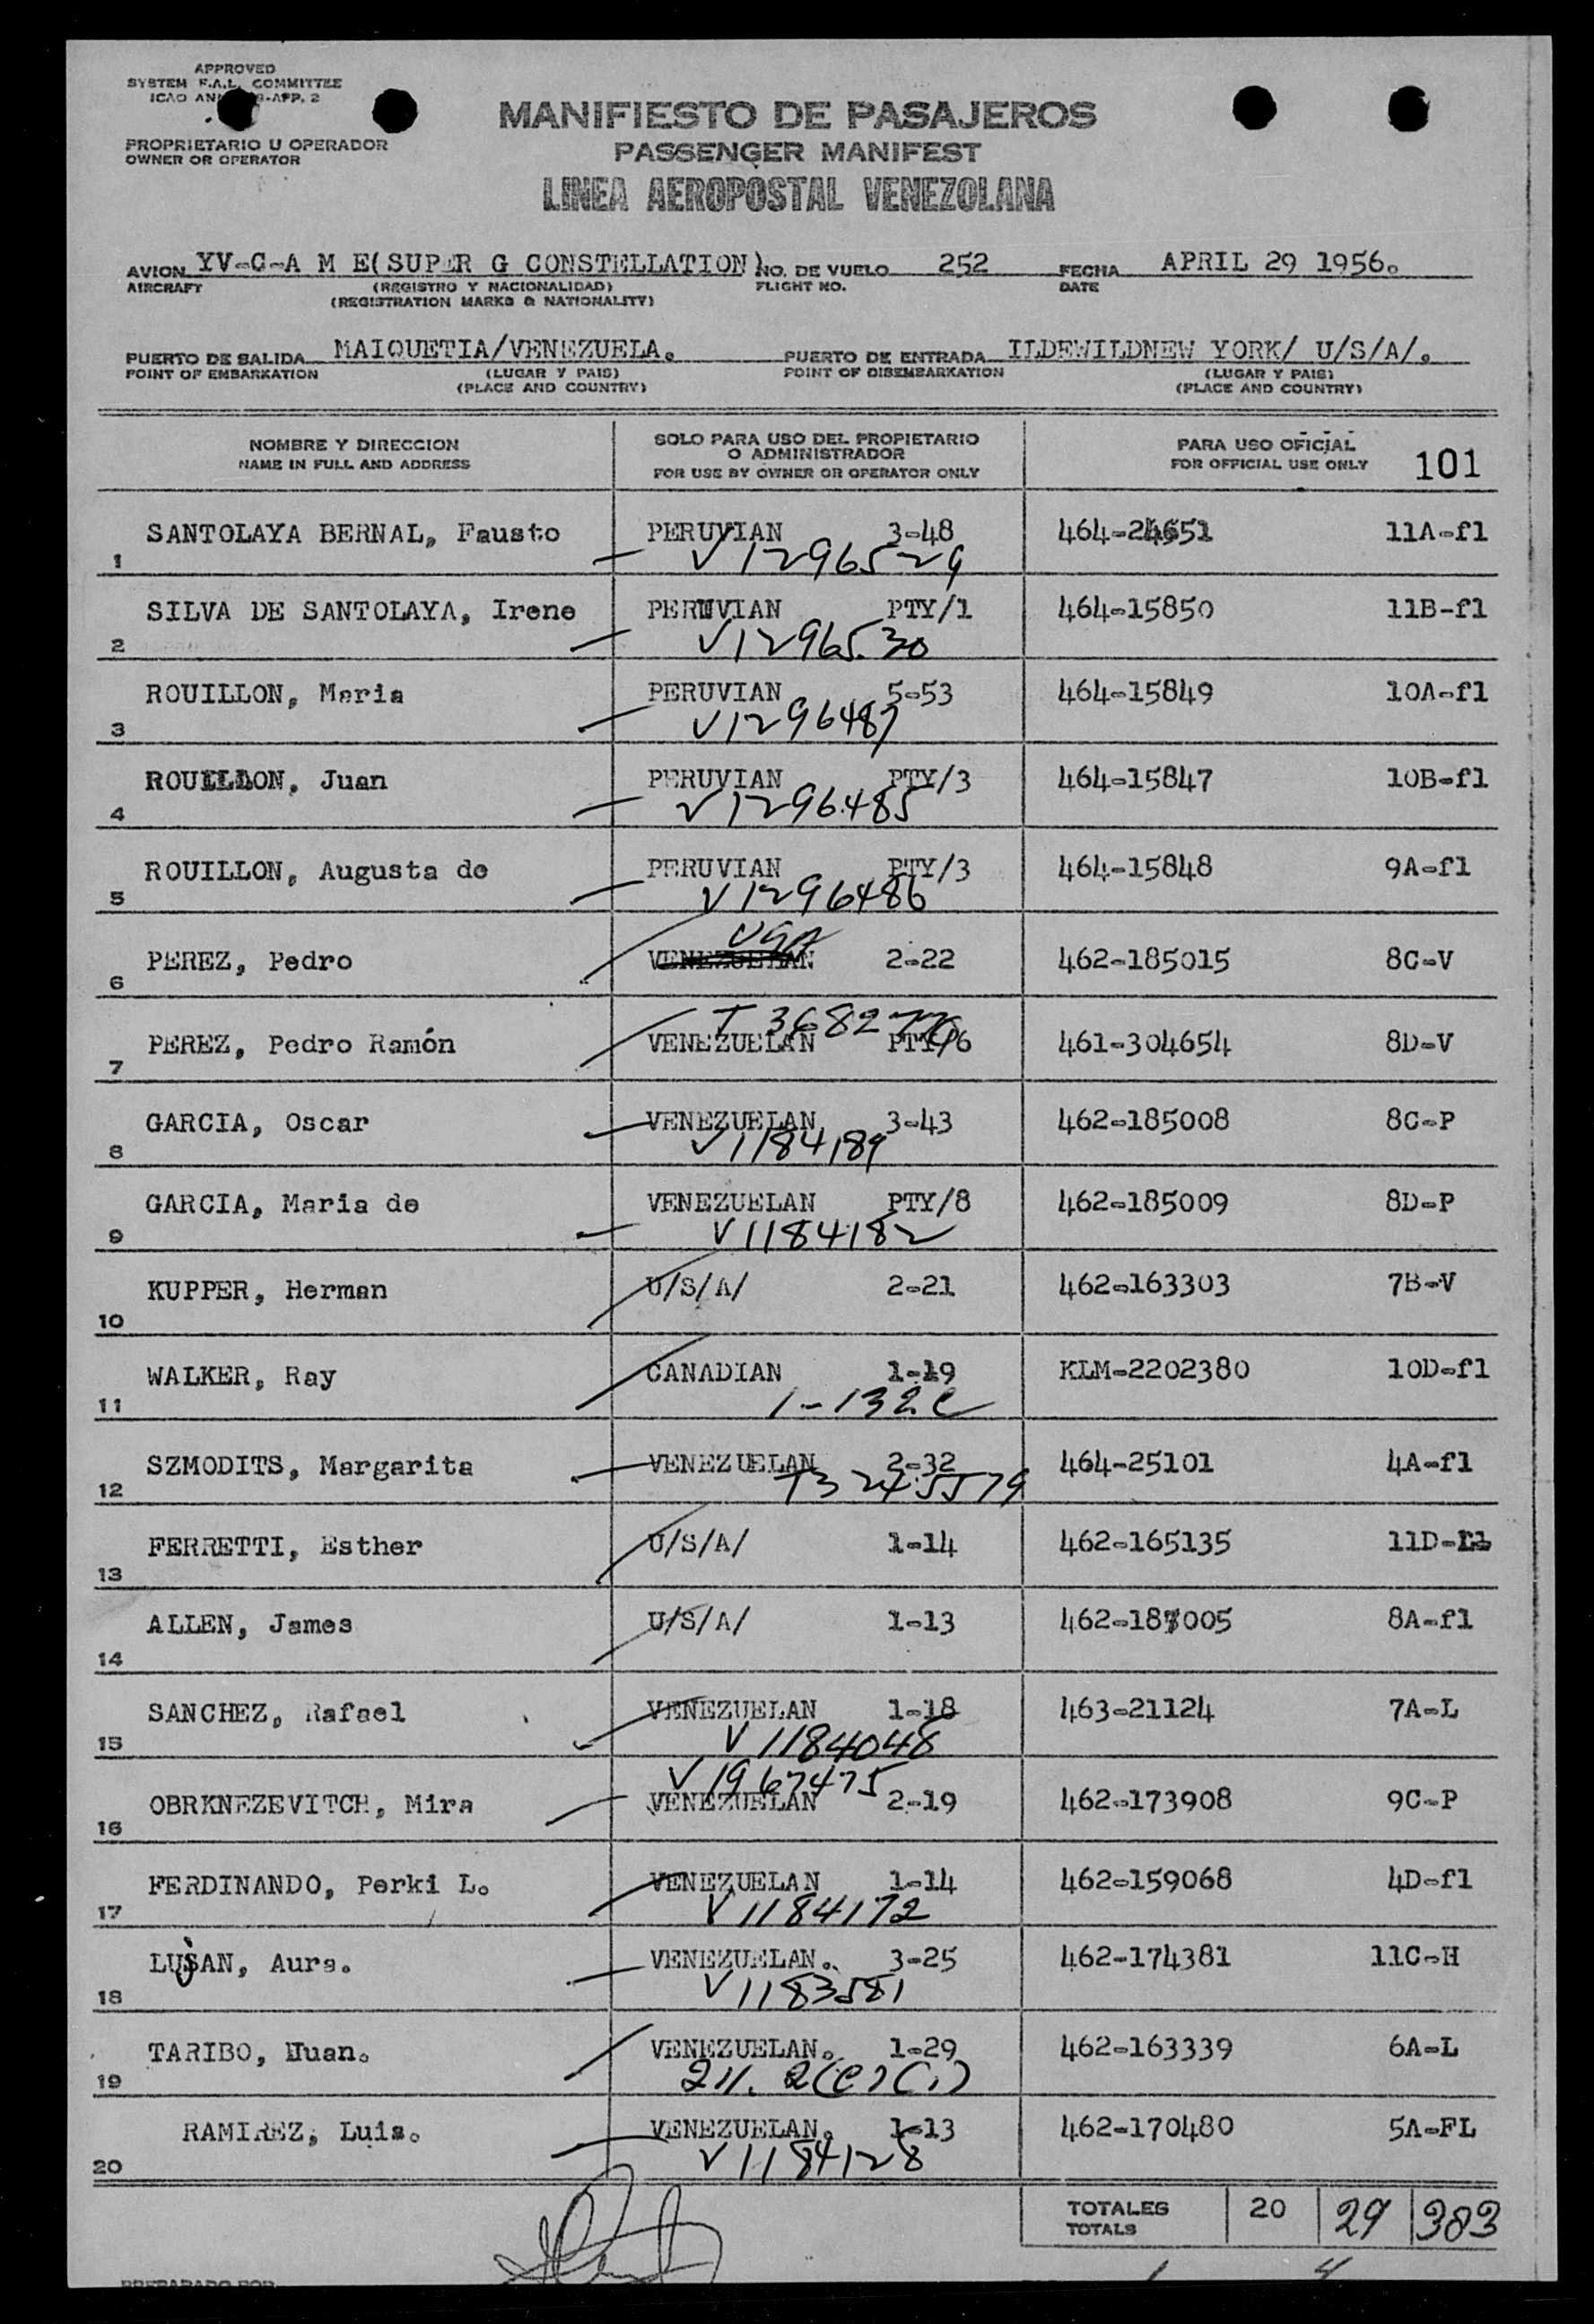 APPROVED
SYSTEM F.A.L. COMMITTEE
ICAO 9-APP. 2
PROPRIETARIO U OPERADOR
OWNER OR OPERATOR
MANIFIESTO DE PASAJEROS
PASSENGER MANIFEST
LINEA AEROPOSTAL VENEZOLANA
AVION YV-C-A M E(SUPER G CONSTELLATION) NO. DE VUELO 252 FECHA APRIL 29 1956.
AIRCRAFT (REGISTRO Y NACIONALIDAD) FLIGHT NO. DATE
(REGISTRATION MARKS & NATIONALITY)
PUERTO DE SALIDA MAIQUETIA/VENEZUELA. PUERTO DE ENTRADA ILDEWILDNEW YORK/ U/S/A/.
POINT OF EMBARKATION (LUGAR Y PAIS) POINT OF DISEMBARKATION (LUGAR Y PAIS)
(PLACE AND COUNTRY) (PLACE AND COUNTRY)
NOMBRE Y DIRECCION
NAME IN FULL AND ADDRESS
SOLO PARA USO DEL PROPIETARIO
O ADMINISTRADOR
FOR USE BY OWNER OR OPERATOR ONLY
PARA USO OFICIAL
FOR OFFICIAL USE ONLY 101
1 SANTOLAYA BERNAL, Fausto PERUVIAN 3-48 464-24651 11A-fl
V1296529
2 SILVA DE SANTOLAYA, Irene PERUVIAN PTY/1 464-15850 11B-fl
V1296530
3 ROUILLON, Maria PERUVIAN 5-53 464-15849 10A-fl
V1296487
4 ROUILLON, Juan PERUVIAN PTY/3 464-15847 10B-fl
V1296485
5 ROUILLON, Augusta de PERUVIAN PTY/3 464-15848 9A-fl
V1296486
USA
6 PEREZ, Pedro VENEZUELAN 2-22 462-185015 8C-V
T 3682776
7 PEREZ, Pedro Ramón VENEZUELAN PTY/6 461-304654 8D-V
8 GARCIA, Oscar VENEZUELAN 3-43 462-185008 8C-P
V1184189
9 GARCIA, Maria de VENEZUELAN PTY/8 462-185009 8D-P
V1184182
10 KUPPER, Herman U/S/A/ 2-21 462-163303 7B-V
11 WALKER, Ray CANADIAN 1-19 KLM-2202380 10D-fl
1-132C
12 SZMODITS, Margarita VENEZUELAN 2-32 464-25101 4A-fl
T3245579
13 FERRETTI, Esther U/S/A/ 1-14 462-165135 11D-
14 ALLEN, James U/S/A/ 1-13 462-187005 8A-fl
15 SANCHEZ, Rafael VENEZUELAN 1-18 463-21124 7A-L
V1184048
V1967475
16 OBRKNEZEVITCH, Mira VENEZUELAN 2-19 462-173908 9C-P
17 FERDINANDO, Perki L. VENEZUELAN 1-14 462-159068 4D-fl
V1184172
18 LUSAN, Aura. VENEZUELAN. 3-25 462-174381 11C-H
V1183581
19 TARIBO, Huan. VENEZUELAN. 1-29 462-163339 6A-L
211.2(e)(1)
20 RAMIREZ, Luis. VENEZUELAN. 1-13 462-170480 5A-FL
V1184128
TOTALES 20 29 383
TOTALS
1 4
PREPARADO POR